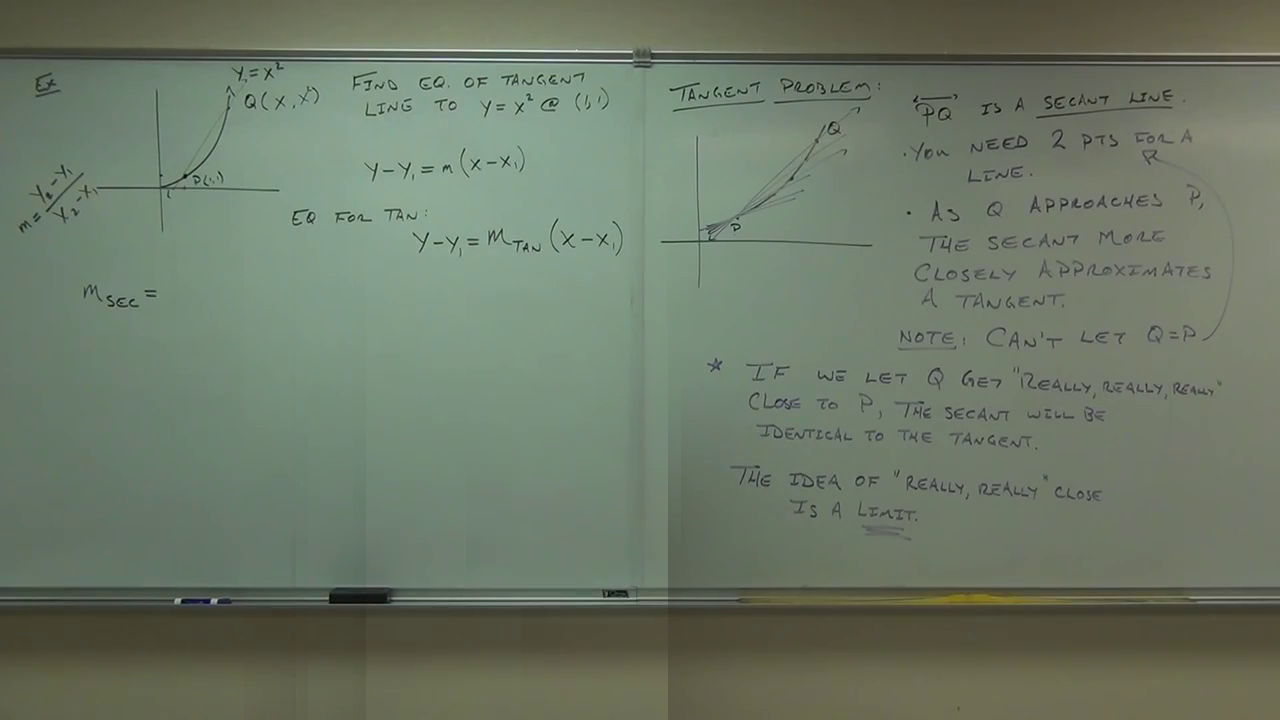 Ex
Y=x²
Q(x, x²)
P(1,1)
m = Y₂-Y₁/X₂-X₁
FIND EQ. OF TANGENT
LINE TO Y=x² @ (1,1)
Y-Y₁=m(x-x₁)
EQ FOR TAN:
Y-Y₁=m TAN (x-x₁)
m SEC =
TANGENT PROBLEM:
Q
P
"PQ" IS A SECANT LINE.
• YOU NEED 2 PTS FOR A
LINE.
• AS Q APPROACHES P,
THE SECANT MORE
CLOSELY APPROXIMATES
A TANGENT.
NOTE: CAN'T LET Q=P
* IF WE LET Q GET "REALLY, REALLY, REALLY"
CLOSE TO P, THE SECANT WILL BE
IDENTICAL TO THE TANGENT.
THE IDEA OF "REALLY, REALLY" CLOSE
IS A LIMIT.